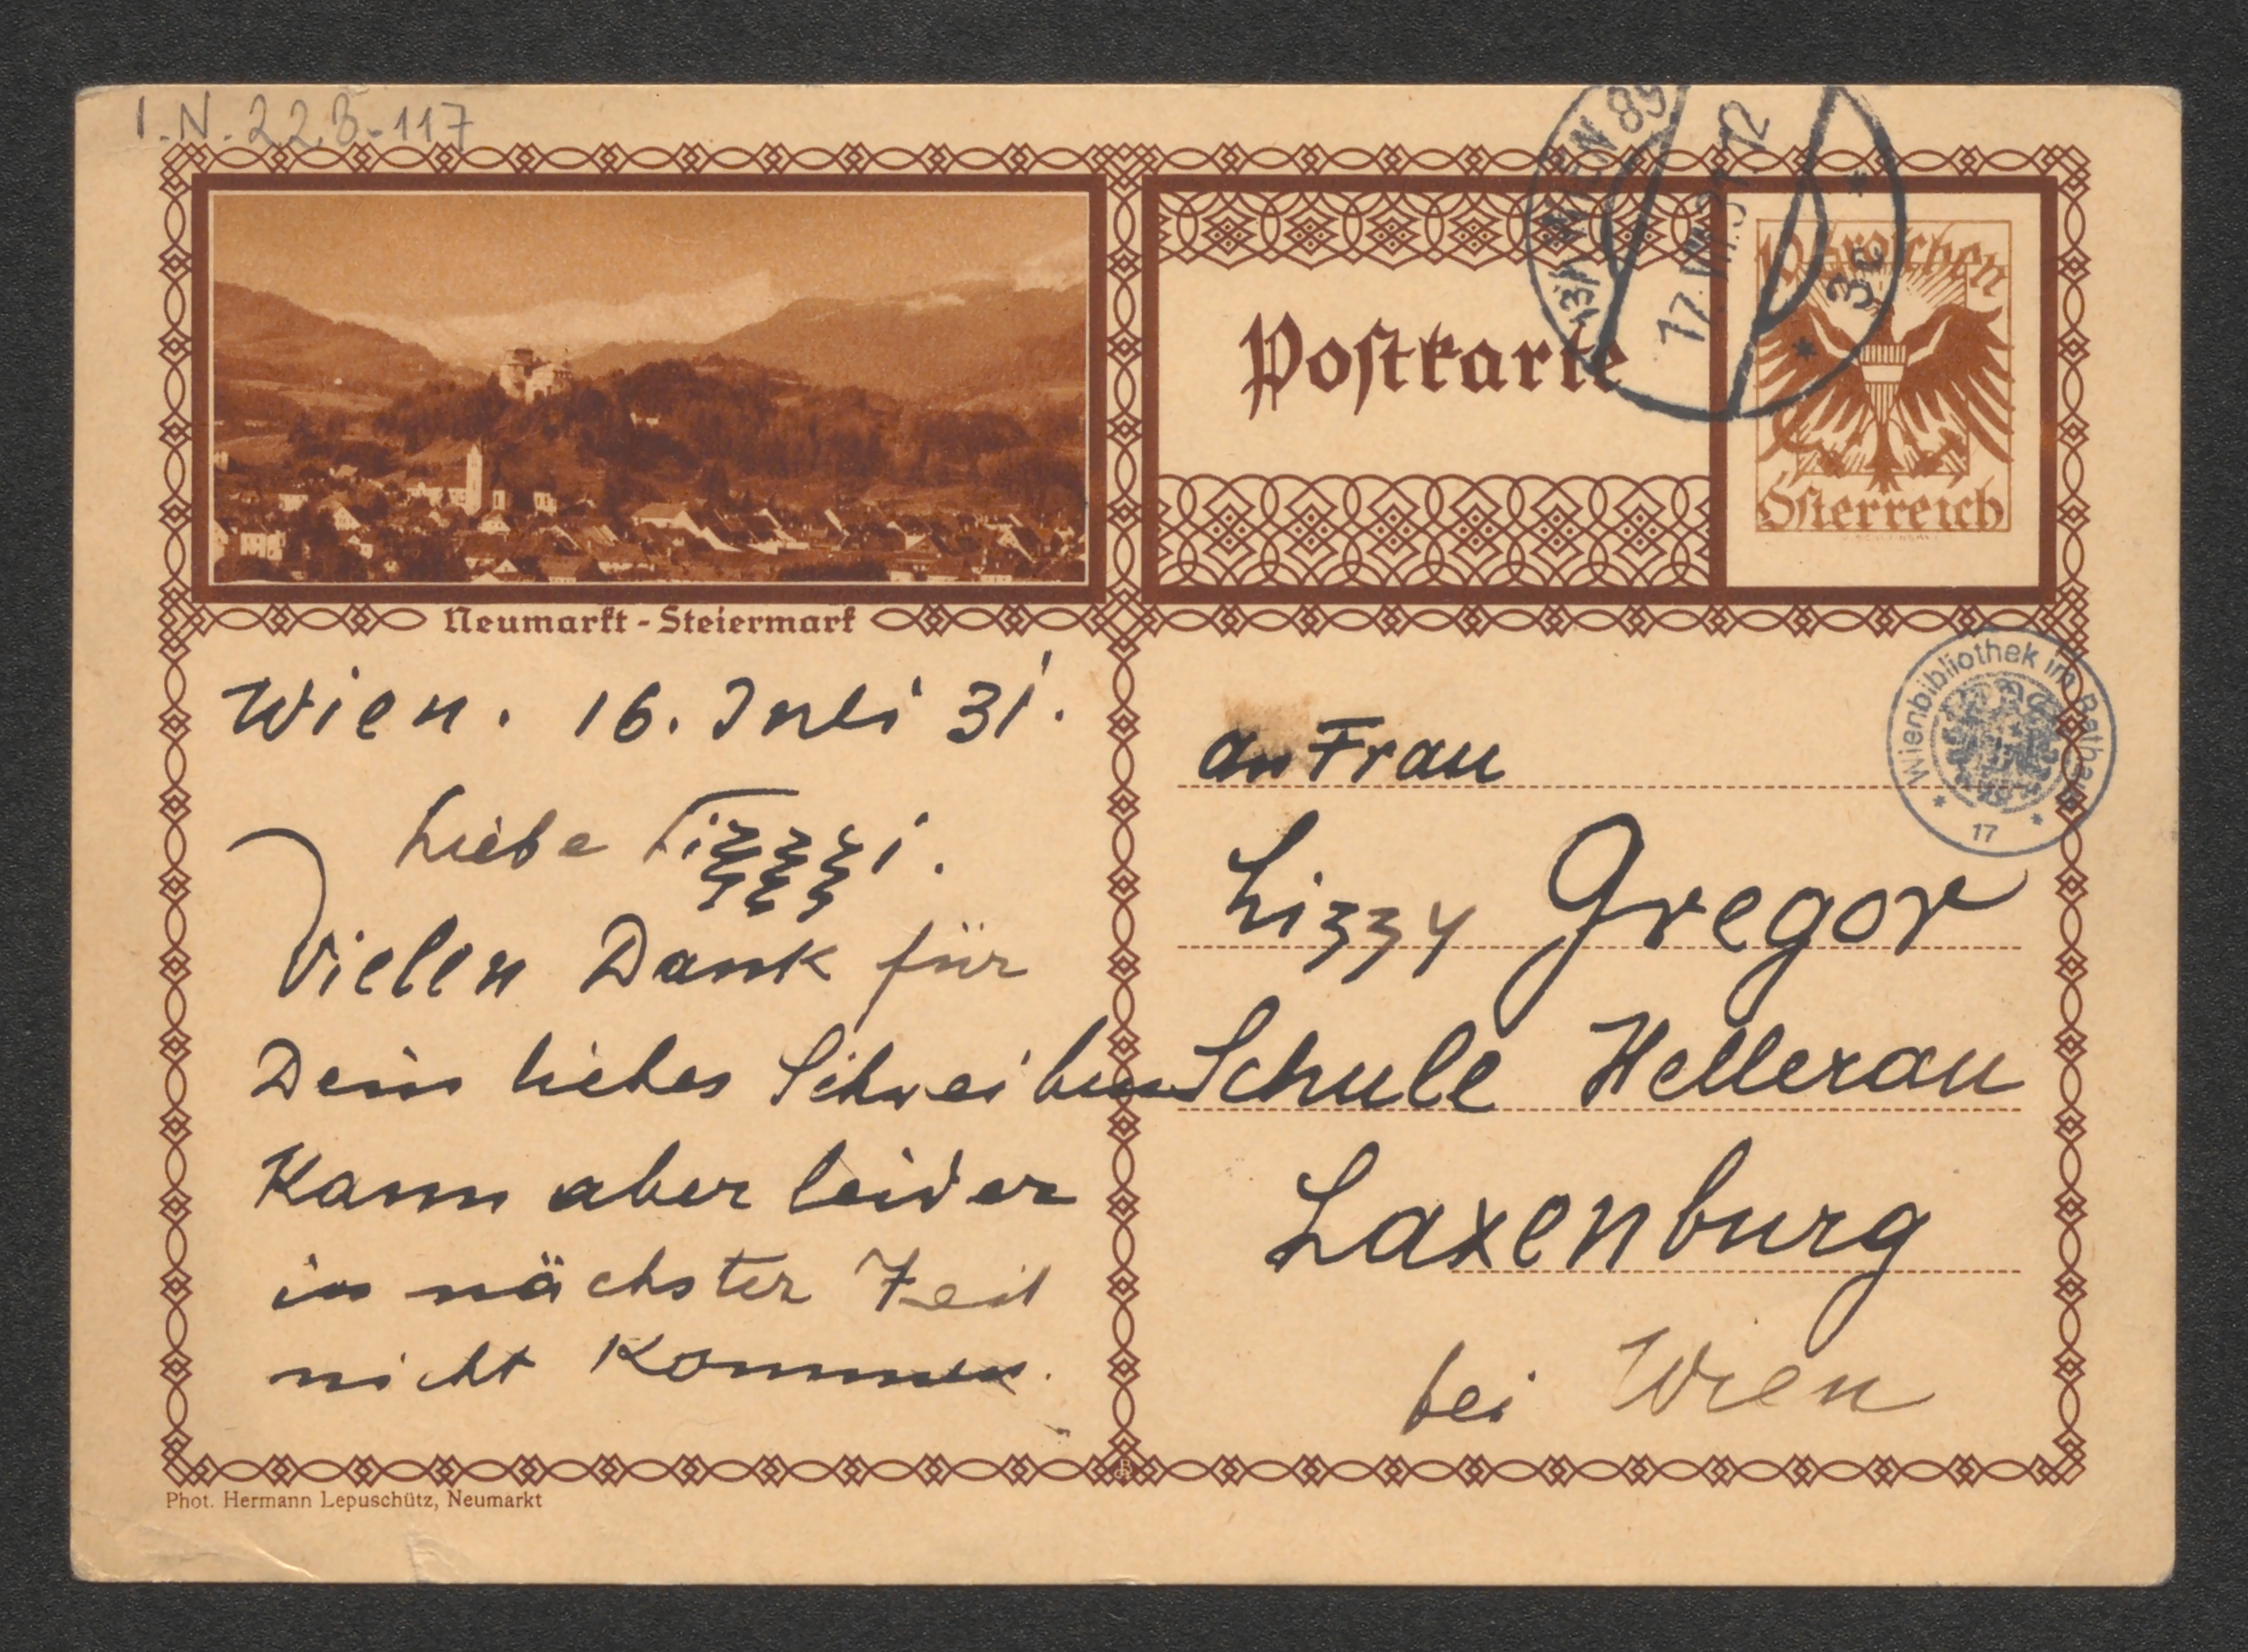 I.N. 228.117
Neumarkt - Steiermark
Wien. 16. Juli 31.
Liebe
Vielen Dank für
Dein liebes Schreiben
Kann aber leider
in nächster Zeit
nicht kommen.
Phot. Hermann Lepuschütz, Neumarkt
WIEN 89
17.VII.31.12
3c
Postkarte
10 Groschen
Österreich
Wienbibliothek im Rathaus
17
an Frau
Lizzy Gregor
Schule Hellerau
Laxenburg
bei Wien